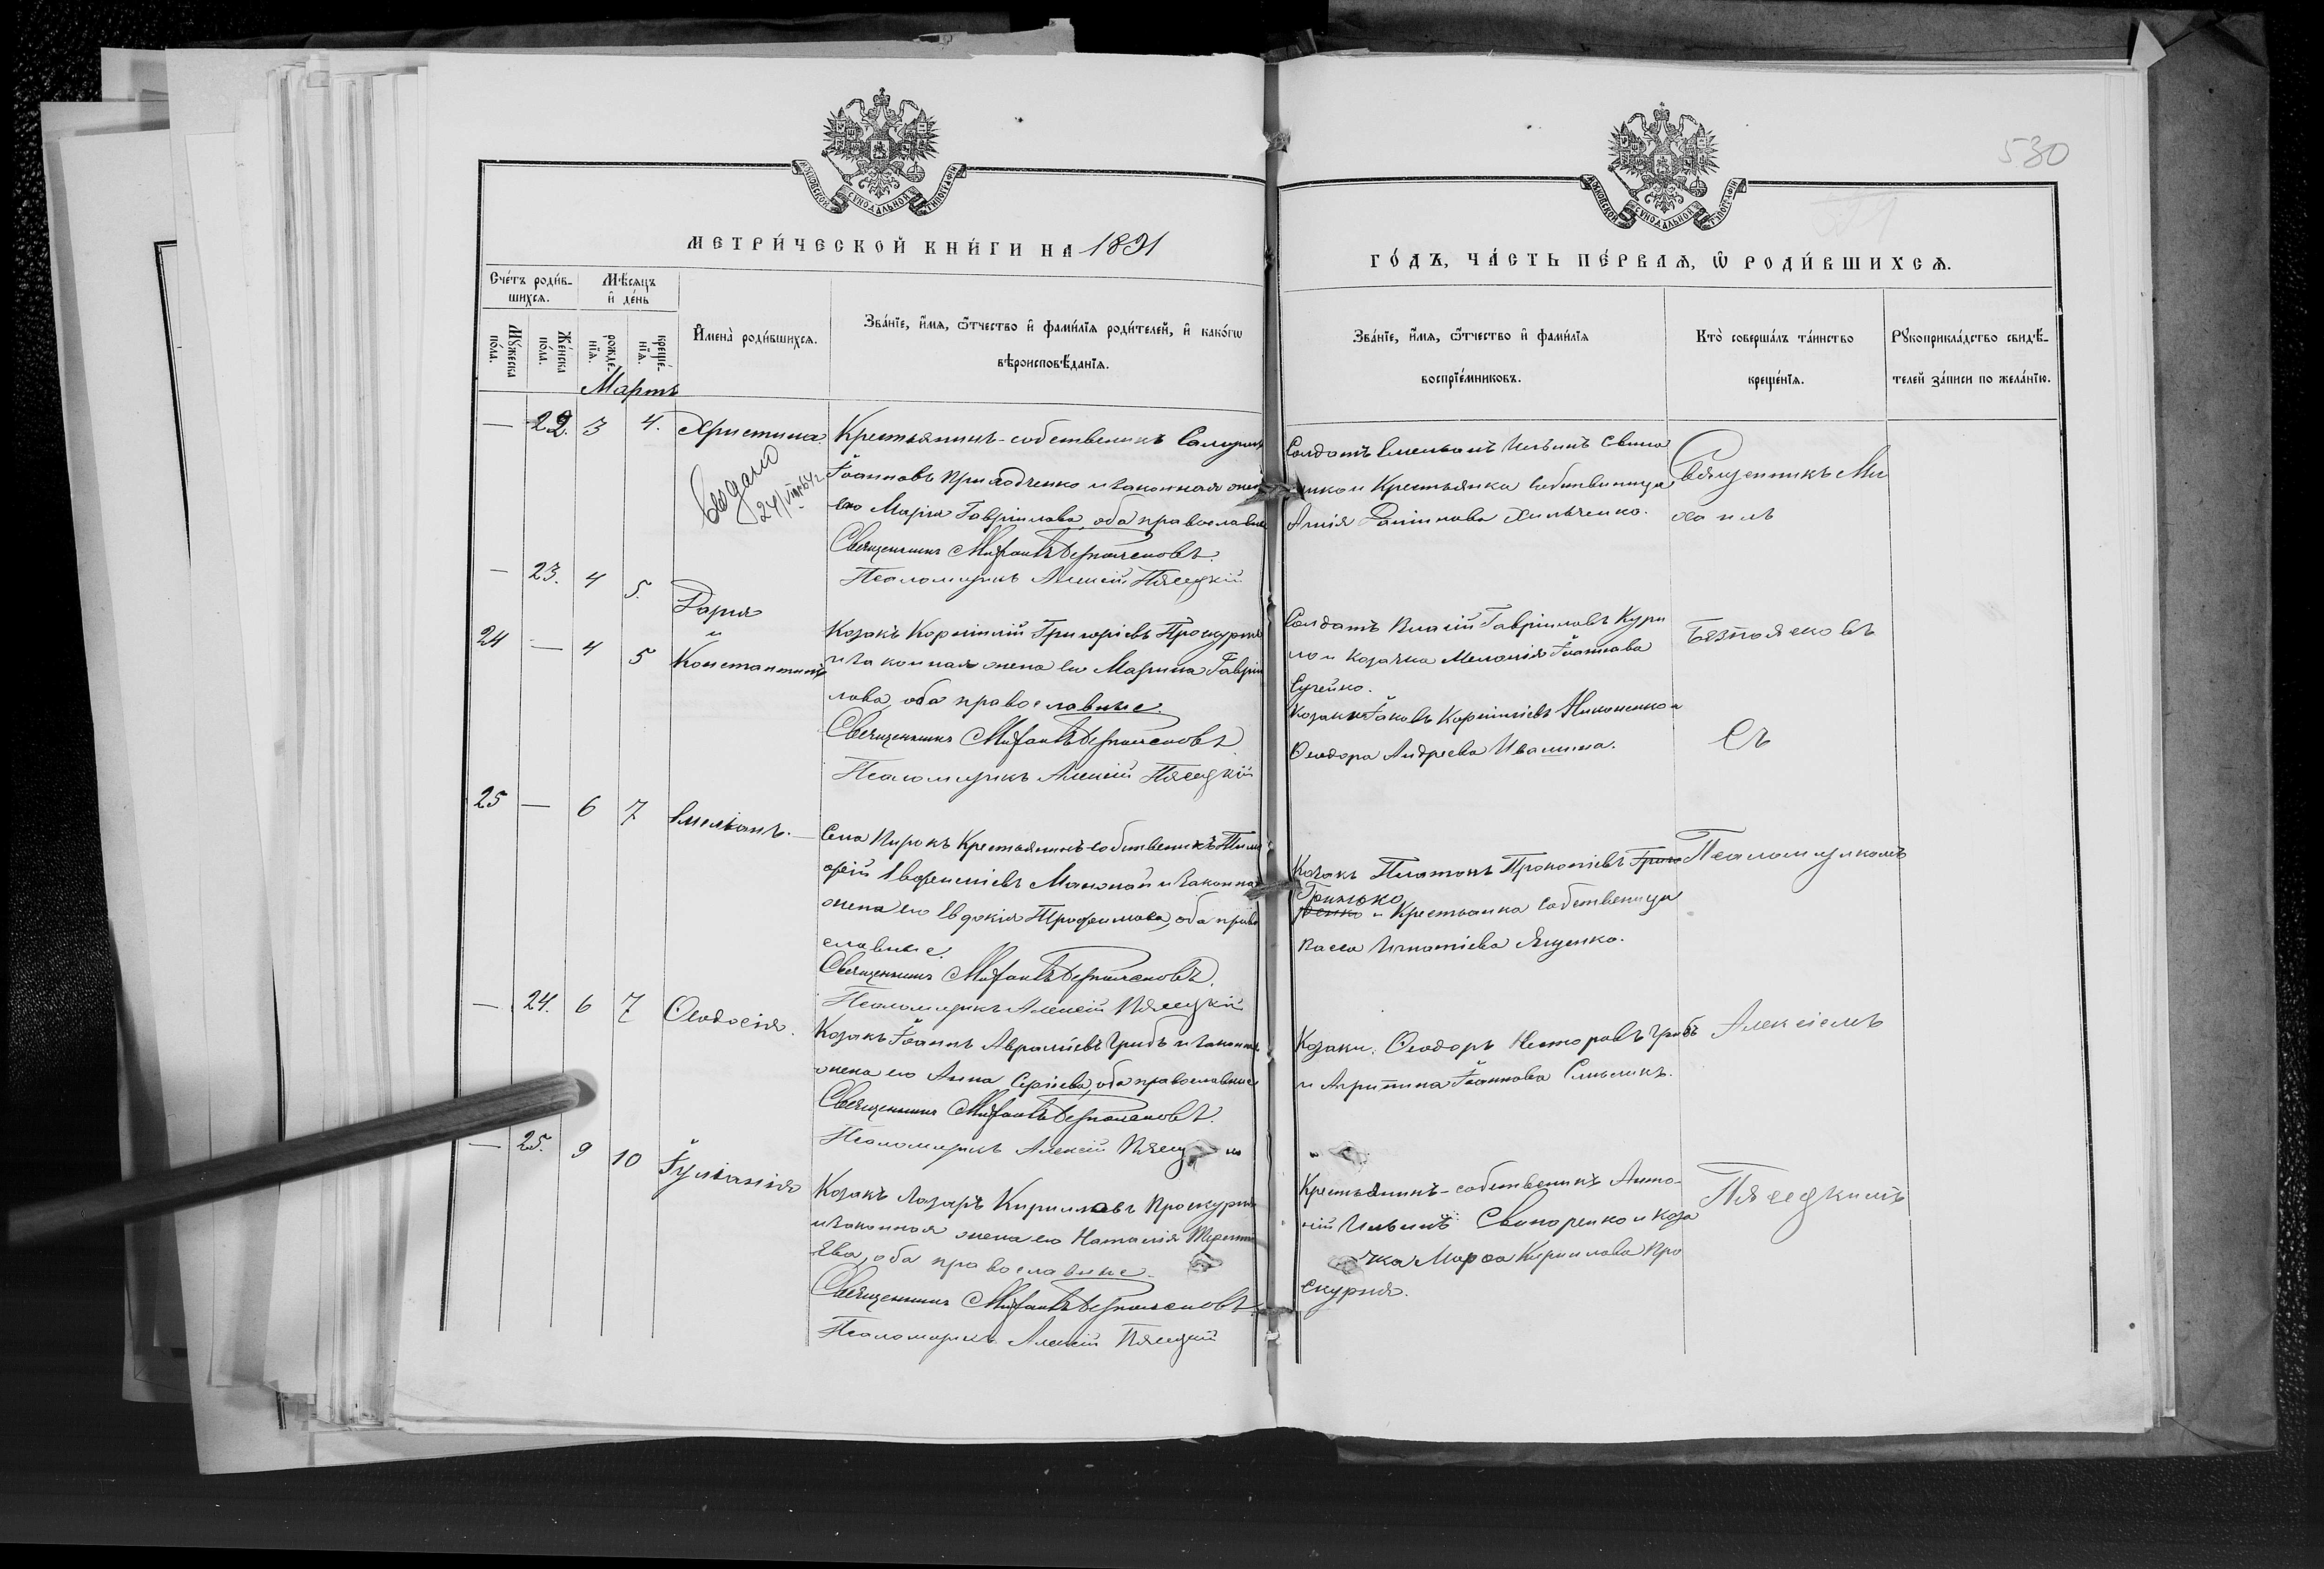 530
МОСКОВСКОЙ СѴНОДАЛЬНОЙ ТИПОГРАФІИ
МОСКОВСКОЙ СѴНОДАЛЬНОЙ ТИПОГРАФІИ
МЕТРИ́ЧЕСКОЙ КНИ́ГИ НА 1891
ГО́ДЪ, ЧА́СТЬ ПЕ́РВАѦ, Ѡ҃ РОДИ́ВШИХСѦ.
Сче́тъ роди́в-
шихсѧ.
Мѣ́сѧцъ
и҆ де́нь
Мꙋ́жеска
по́ла.
Же́нска
по́ла.
рожде-
нїѧ.
креще́-
нїѧ.
И҆мена̀ роди́вшихсѧ.
Зва́нїе, и҆́мѧ, ѻ҆́тчество и҆ фами́лїѧ роди́телей, и҆ како́гѡ
вѣроисповѣ́данїѧ.
Зва́нїе, и҆́мѧ, ѻ҆́тчество и҆ фами́лїѧ
воспрїе́мниковъ.
Кто̀ соверша́лъ та́инство
креще́нїѧ.
Рꙋкоприкла́дство свидѣ́-
телей за́писи по жела́нїю.
Мартъ
— 22. 3 4. Христина
Крестьянинъ-собственикъ
Іоанновъ Приходченко и законная жена
его Марія Гавріилова, оба православные
Священникъ Михаилъ Безпоясковъ.
Псаломщикъ Алексій Пясецкій
Солдатъ Емельянъ Ильинъ
и Крестьянка Собственница
Хильченко.
Священникъ Ми
хаилъ
— 23. 4 5. Дарія
и
24 — 4 5 Константинъ
Козакъ Корнилій Григоріевъ Проскурня
и законная жена его Марина Гавріи
лова, оба православные.
Священникъ Михаилъ Безпоясковъ.
Псаломщикъ Алексій Пясецкій
Солдатъ Власій Гавріиловъ Кури
ло и козачка Меланія Іоаннова
Сугейко.
Козаки Іаковъ Корниліевъ Никоненко и
Ѳеодора Андреева Ивашина.
Безпоясковъ
Съ
25 — 6 7 Емеліанъ.
Села Пирокъ Крестьянинъ-собственикъ Тимо
ѳей и законная
жена его Евдокія Трофимова, оба право
славные.
Священникъ Михаилъ Безпоясковъ.
Псаломщикъ Алексій Пясецкій
Козакъ Платонъ Прокопіевъ
Гринько
и Крестьянка Собственица
Васса Игнатіева Ященко.
Псаломщикомъ
— 24. 6 7 Ѳеодосія.
Козакъ Іоаннъ Авраміевъ Грибъ и законная
жена его Анна Сергіева, оба православные
Священникъ Михаилъ Безпоясковъ.
Псаломщикъ Алексій
Козаки: Ѳеодоръ Несторовъ Грибъ
и Агрипина Іоаннова
Алексіемъ
— 25. 9 10 Іуліанія
Козакъ Лазарь Кирилловъ Проскурня
и законная жена его Наталія Теренті
ева, оба православные.
Священникъ Михаилъ Безпоясковъ.
Псаломщикъ Алексій Пясецкій
Крестьянинъ-собственикъ Анто-
ній Ильинъ и коза
чка Марѳа Кириллова Про
скурня.
Пясецкимъ